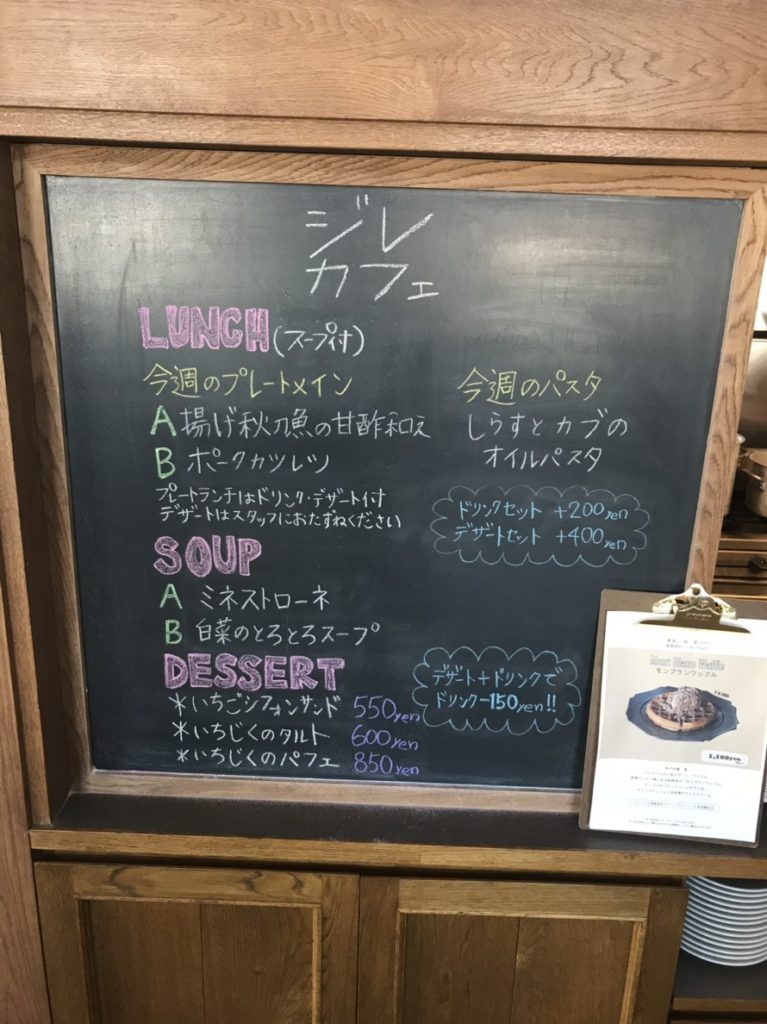 ジレ
カフェ
LUNCH(スープ付)
今週のプレートメイン
A 揚げ秋刀魚の甘酢和え
B ポークカツレツ
プレートランチはドリンク・デザート付
デザートはスタッフにおたずねください
今週のパスタ
しらすとカブの
オイルパスタ
ドリンクセット +200yen
デザートセット +400yen
SOUP
A ミネストローネ
B 白菜のとろとろスープ
DESSERT
*いちごシフォンサンド 550yen
*いちじくのタルト 600yen
*いちじくのパフェ 850yen
デザート+ドリンクで
ドリンクー150yen!!
Mont Blanc Waffle
モンブランワッフル
1,100yen